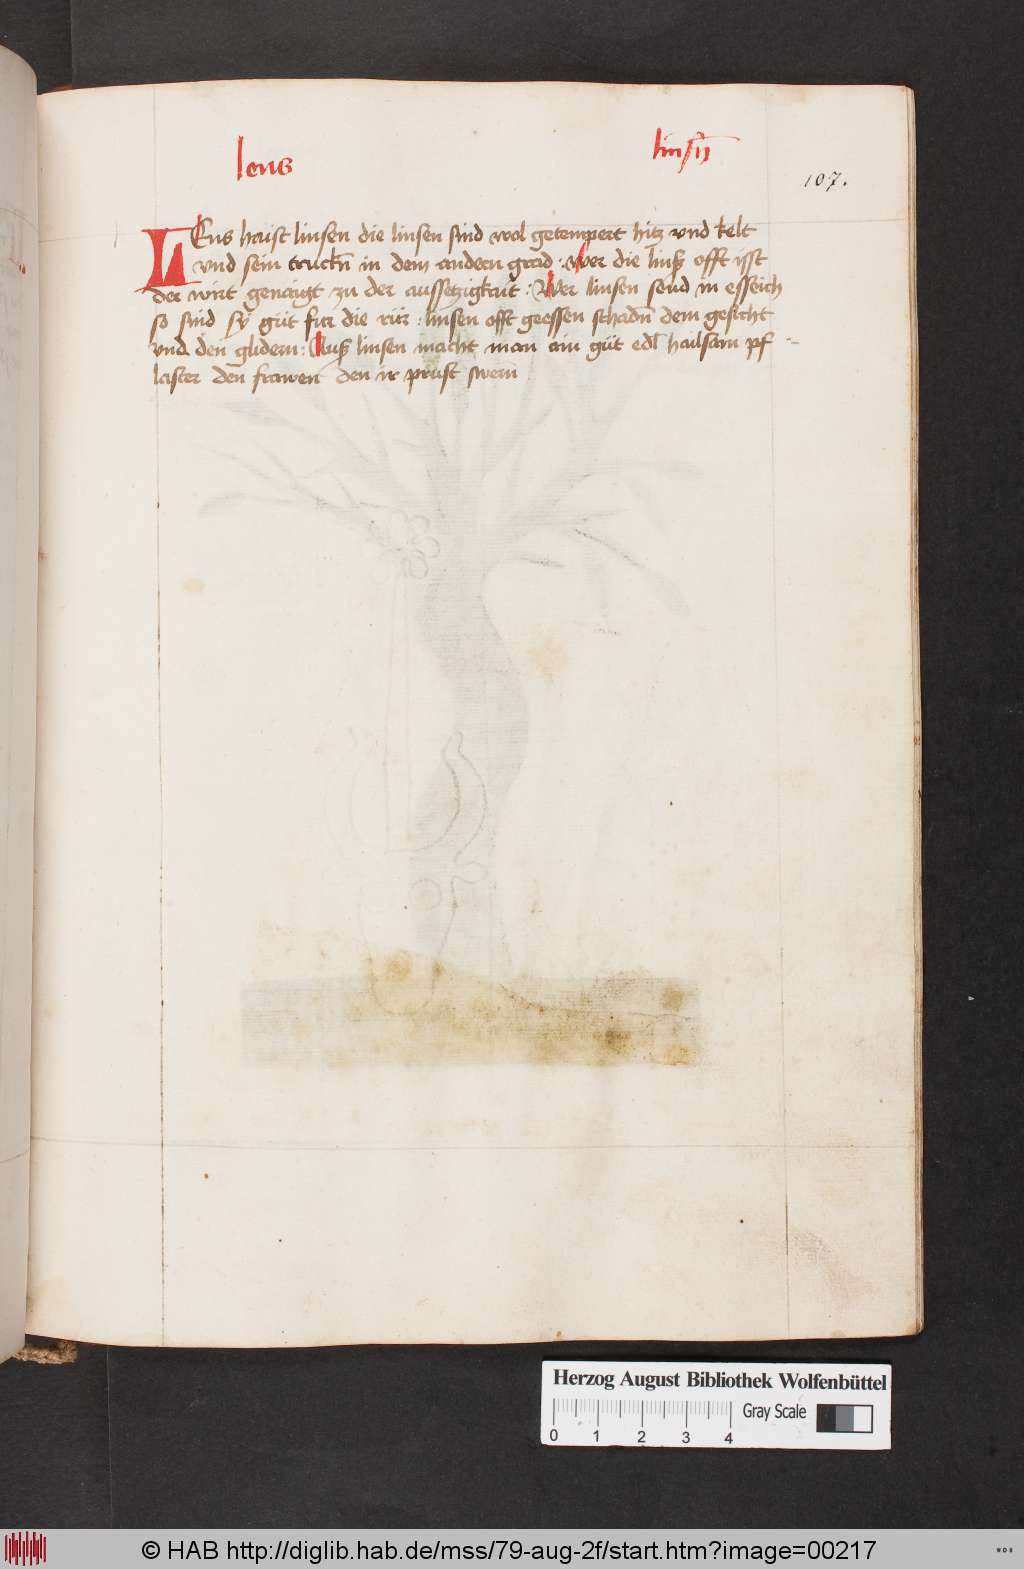 lens
linsñ
107.
LEns haist linsen die linsen sind wol getempert hitz vnd kelt
vnd sein truckñ in dem andern grad : Wer die linß offt isst
der wirt genaigt zu der aussetzigkait : Wer linsen seud in esseich
so sind sy gůt fur die rur : linsen offt geessen schadñ dem gesicht
vnd den glidern : Auß linsen macht man ain gůt edl hailsam pf
laster den frawen den ir prust swern
Herzog August Bibliothek Wolfenbüttel
Gray Scale
0 1 2 3 4
© HAB http://diglib.hab.de/mss/79-aug-2f/start.htm?image=00217